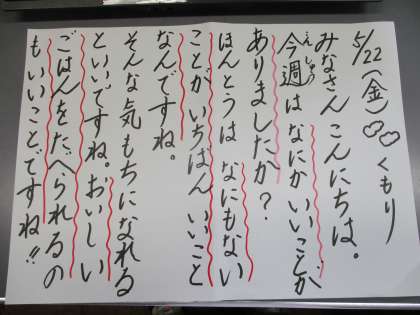 5/22(金)くもり
みなさん こんにちは。
今週は なにか いいことが
ありましたか?
ほんとうは なにもない
ことが いちばん いいこと
なんですね。
そんな 気もちに なれる
といいですね。おいしい
ごはんを たべられるの
も いいことですね!!